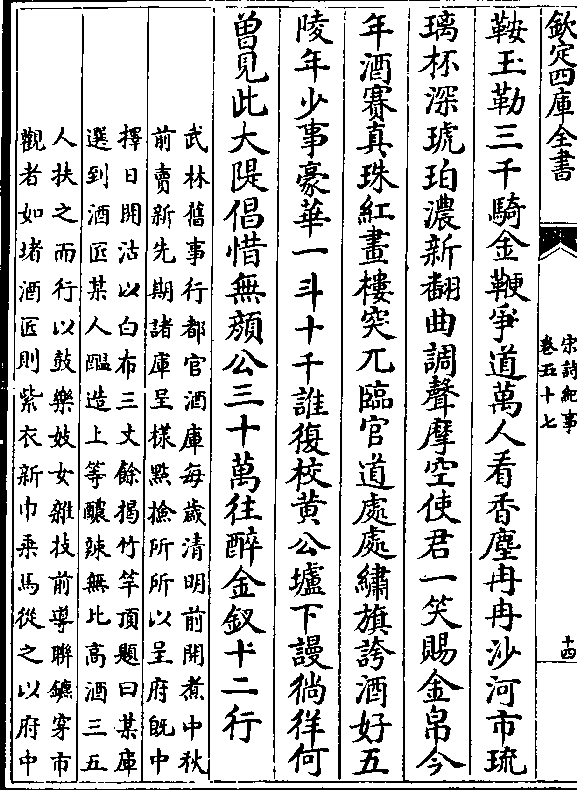 欽定四庫全書
宋詩紀事
卷五十七
十四
鞍玉勒三千騎金鞭爭道萬人看香塵冉冉沙河市琉
璃杯深琥珀濃新翻曲調聲摩空使君一笑賜金帛今
年酒賽真珠紅畫樓突兀臨官道處處繡旗誇酒好五
陵年少事豪華一斗十千誰復校黄公壚下謾徜徉何
曽見此大隄倡惜無顔公三十萬往醉金釵十二行
武林舊事行都官酒庫每歲清明前開煮中秋
前賣新先期諸庫呈様㸃撿所所以呈府既中
擇日開沽以白布三丈餘掲竹竿頂題曰某庫
選到酒匠某人醖造上等醲辣無比高酒三五
人扶之而行以鼓樂妓女雜技前導聯鑣穿市
觀者如堵酒匠則紫衣新巾乘馬從之以府中